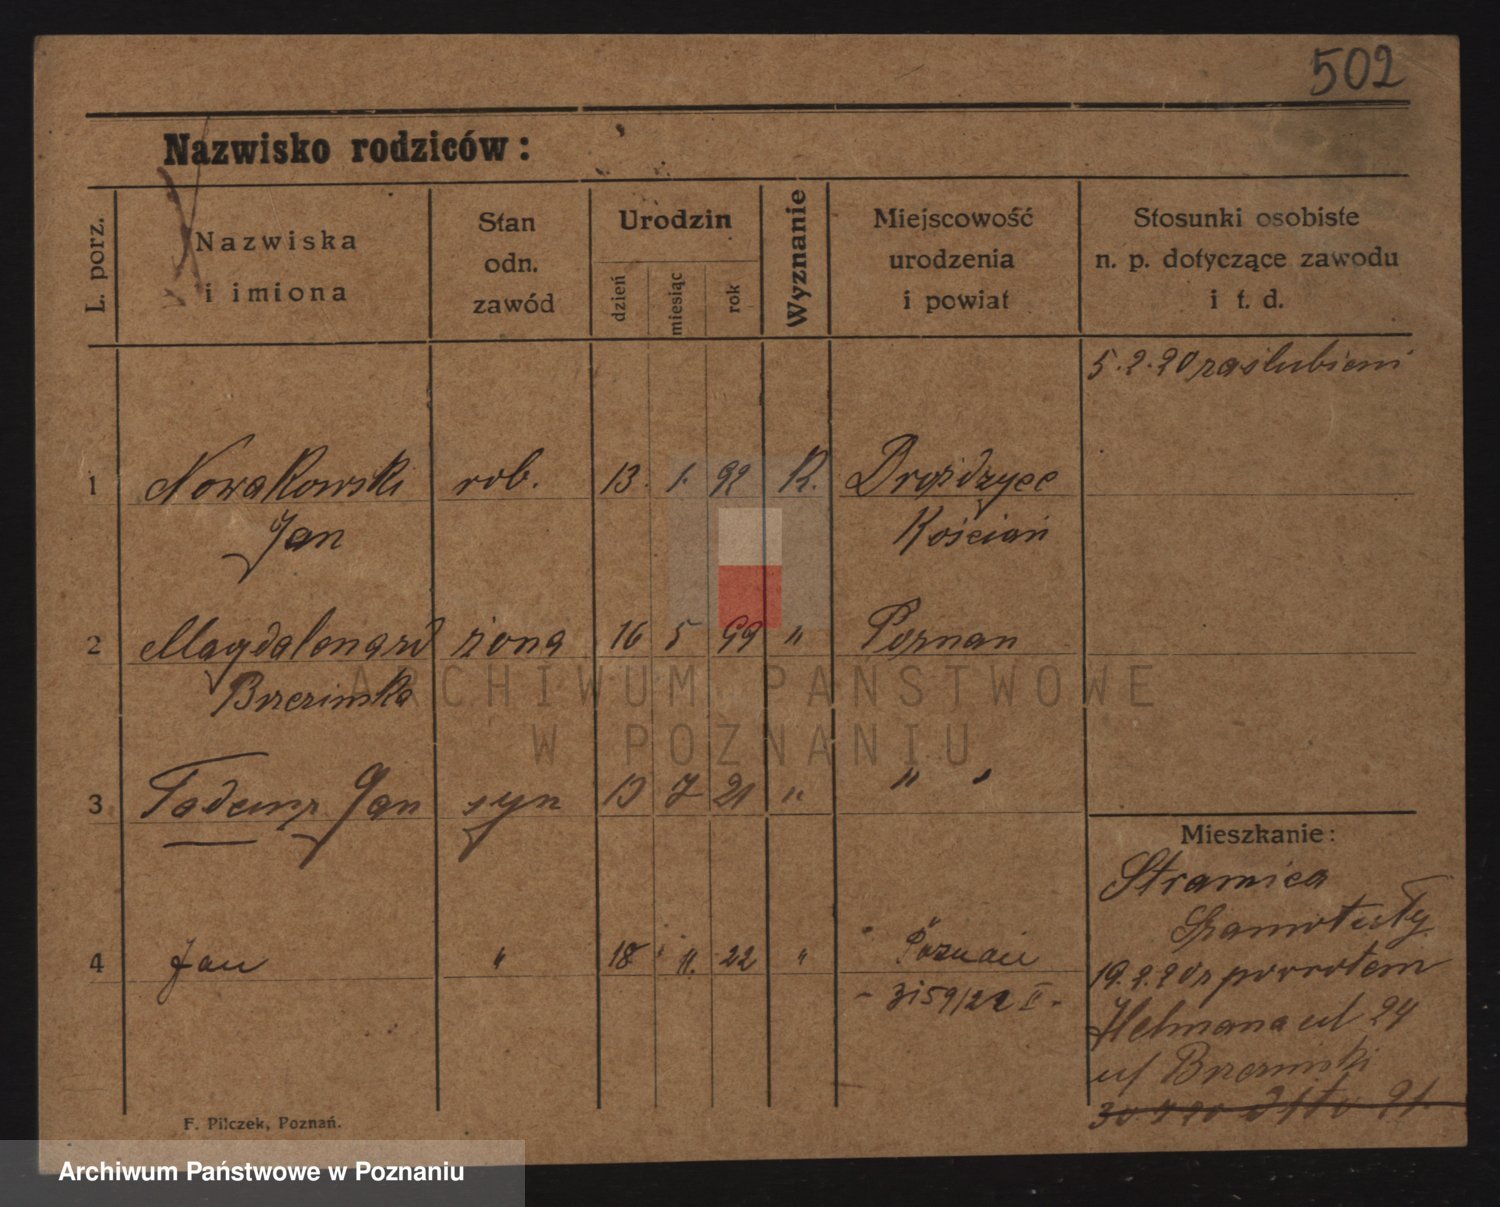 502
Nazwisko rodziców:
L. porz.
Nazwiska
i imiona
Stan
odn.
zawód
Urodzin
dzień
miesiąc
rok
Wyznanie
Miejscowość
urodzenia
i powiat
Stosunki osobiste
n. p. dotyczące zawodu
i t. d.
5.2.20 zaślubieni
1 Nowakowski rob. 13. 1. 92 R.
Jan Kościan
2 Magdalena zd żona 16 5 99 " Poznan
Brzezinska
ARCHIWUM PAŃSTWOWE
W POZNANIU
3 Tadeusz Jan syn 7 21 " " "
Mieszkanie:
Stramica
Szamotuły
4 Jan " 18 11. 22 " Poznań
19.2.20 z powrotem
- 3159/22 II -
24
Brzezinski
F. Pilczek, Poznań.
Archiwum Państwowe w Poznaniu